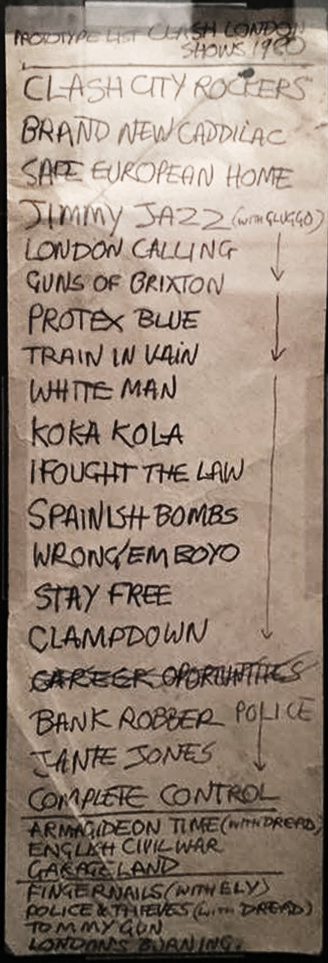 PROTOTYPE LIST CLASH LONDON
SHOWS 1980
CLASH CITY ROCKERS
BRAND NEW CADDILAC
SAFE EUROPEAN HOME
JIMMY JAZZ (WITH GLUGGO)
LONDON CALLING
GUNS OF BRIXTON
PROTEX BLUE
TRAIN IN VAIN
WHITE MAN
KOKA KOLA
I FOUGHT THE LAW
SPAINISH BOMBS
WRONG 'EM BOYO
STAY FREE
CLAMPDOWN
CAREER OPORTUNITIES
BANK ROBBER POLICE
JANIE JONES
COMPLETE CONTROL
ARMAGIDEON TIME (WITH DREAD)
ENGLISH CIVIL WAR
GARAGE LAND
FINGERNAILS (WITH ELY)
POLICE & THIEVES (WITH DREAD)
TOMMY GUN
LONDON'S BURNING.